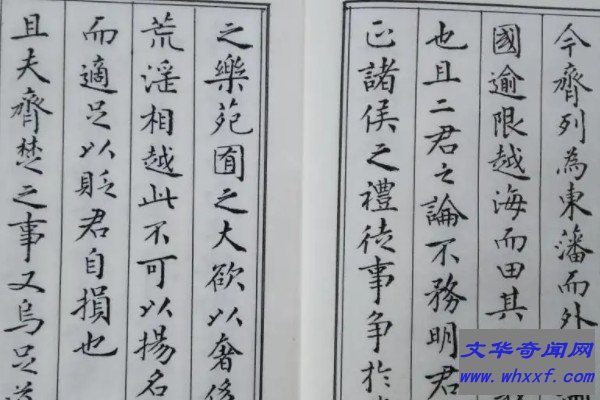 今齊列為東藩而外
國逾限越海而田其
也且二君之論不務明君
正諸侯之禮徒事爭於
之樂苑囿之大欲以奢侈
荒淫相越此不可以揚名
而適足以貶君自損也
且夫齊楚之事又烏足道
文华奇闻网
www.whxxf.com